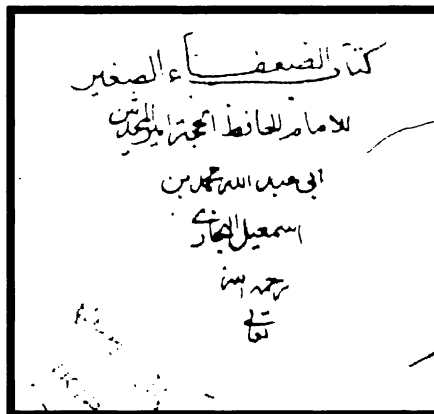 كتاب الضعفاء الصغير
للامام الحافظ الحجة امير المحدثين
ابي عبد الله محمد بن
اسمعيل البخاري
رحمه الله
تعالى